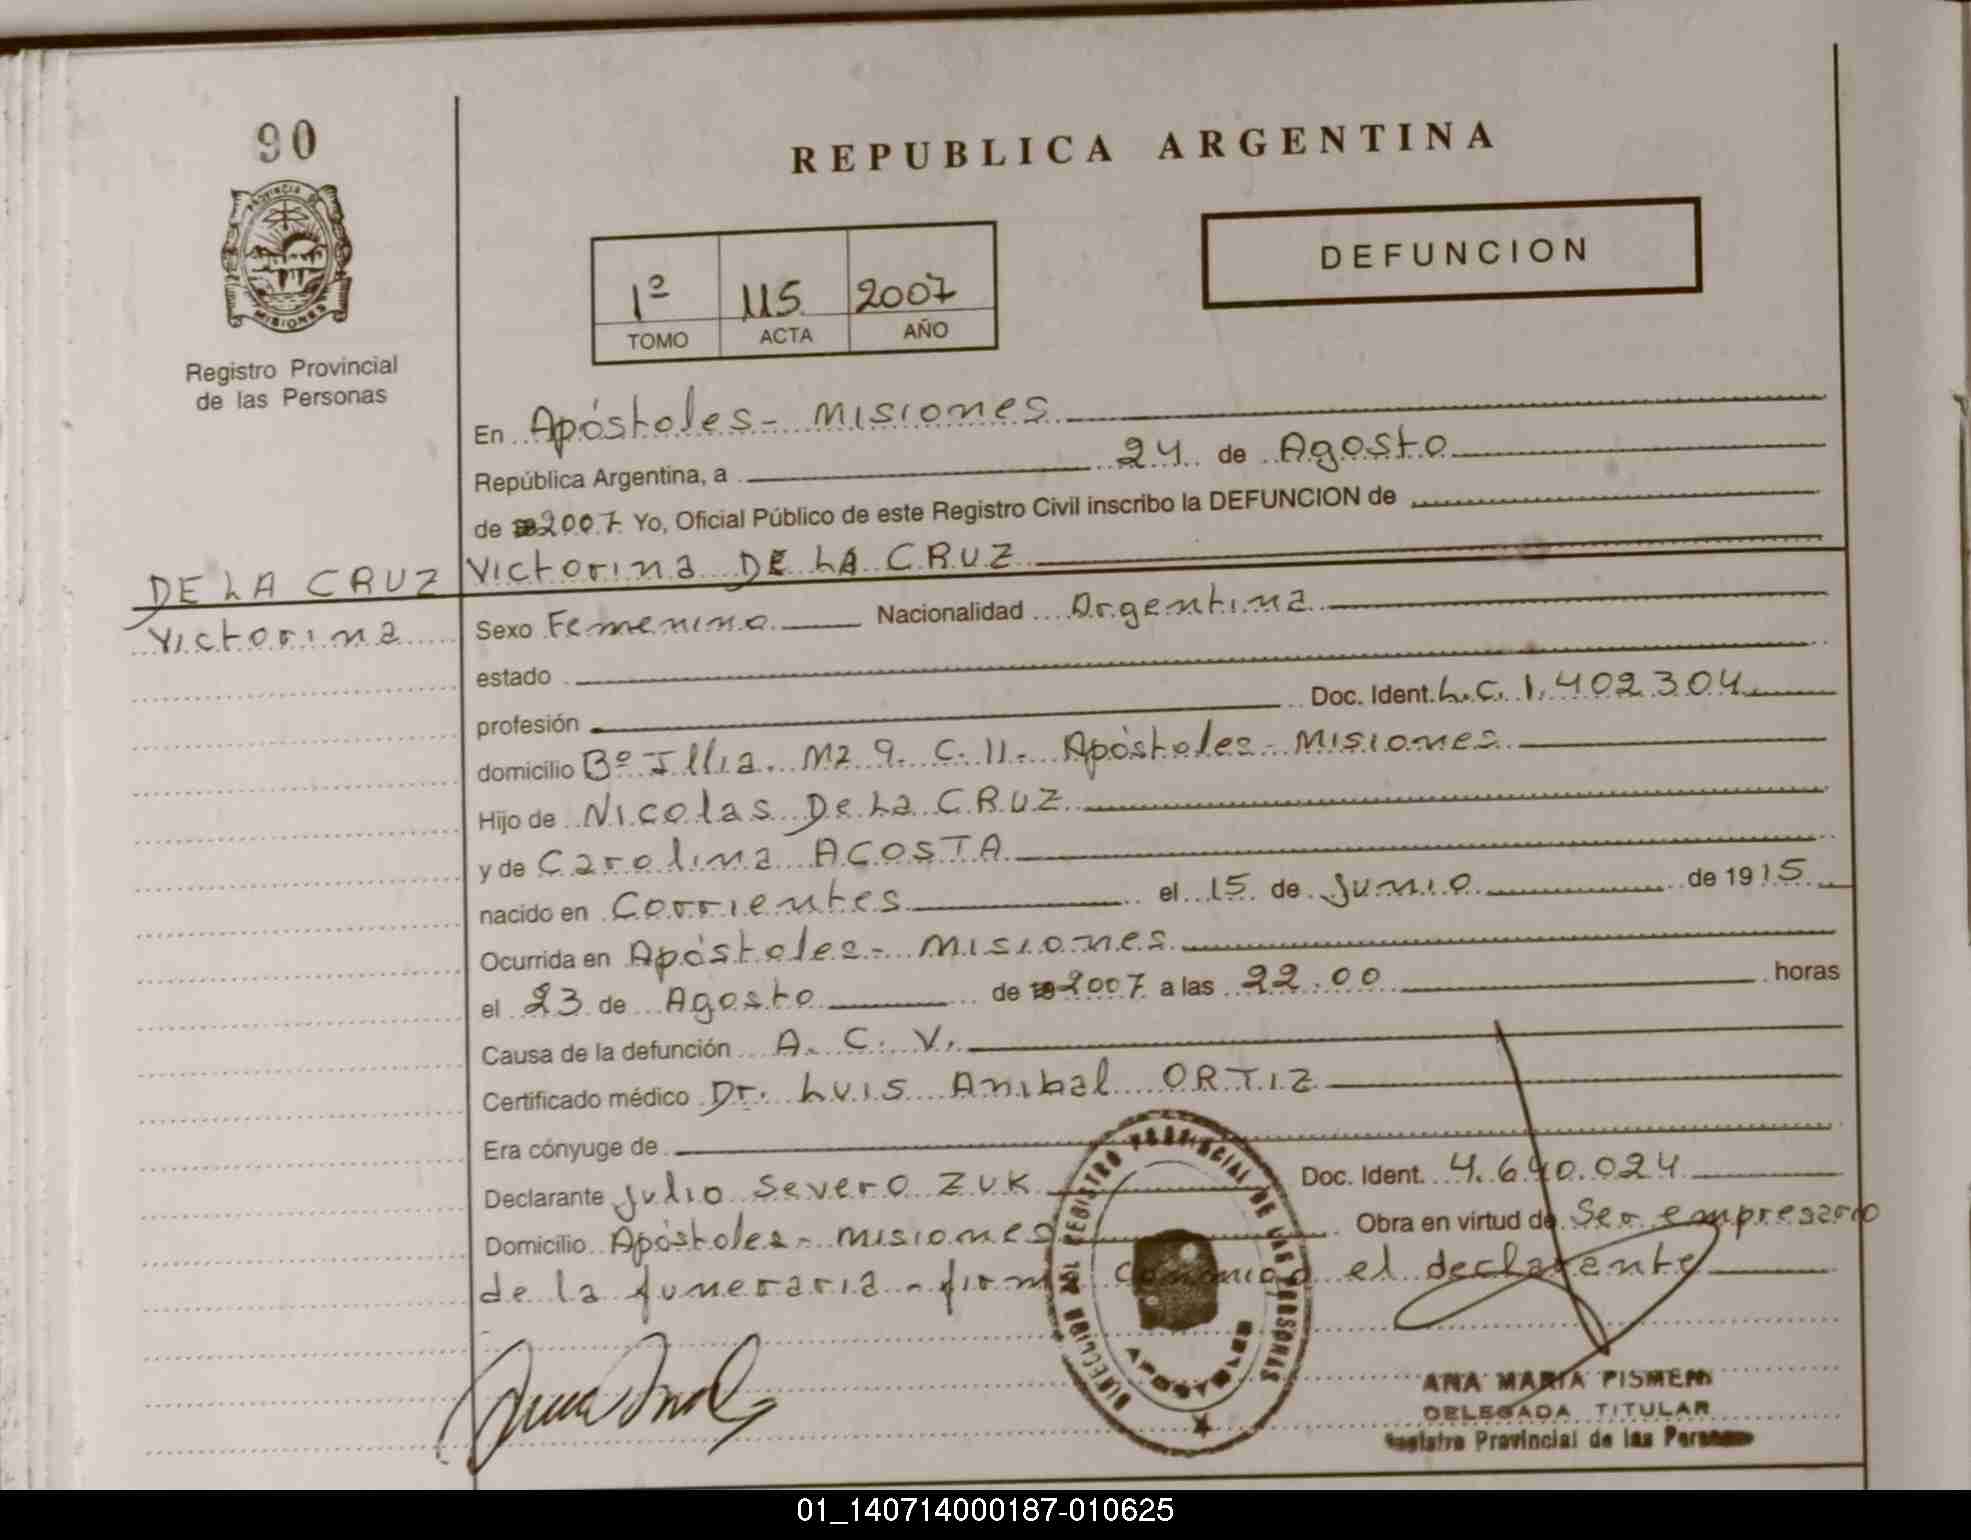 90
PROVINCIA DE
MISIONES
Registro Provincial
de las Personas
REPUBLICA ARGENTINA
1º 115 2007
TOMO ACTA AÑO
DEFUNCION
En Apóstoles - Misiones
República Argentina, a 24 de Agosto
de 2007 Yo, Oficial Público de este Registro Civil inscribo la DEFUNCION de
DE LA CRUZ Victorina DE LA CRUZ
Victorina Sexo Femenino Nacionalidad Argentina
estado
profesión Doc. Ident. L.C. 1.402.304
domicilio Bº Illia. Mz 9. C. 11- Apóstoles - Misiones
Hijo de Nicolas De La CRUZ
y de Carolina ACOSTA
nacido en Corrientes el 15 de Junio de 1915
Ocurrida en Apóstoles - Misiones
el 23 de Agosto de 2007 a las 22.00 horas
Causa de la defunción A. C. V.
Certificado médico Dr. Luis Anibal ORTIZ
Era cónyuge de
Declarante Julio Severo ZUK Doc. Ident. 4.640.024
Domicilio Apóstoles - Misiones Obra en virtud de Ser empresario
de la funeraria - firma conmigo el declarante
DIRECCION DEL REGISTRO PROVINCIAL DE LAS PERSONAS
ANA MARIA PISMENI
DELEGADA TITULAR
Registro Provincial de las Personas
01_140714000187-010625